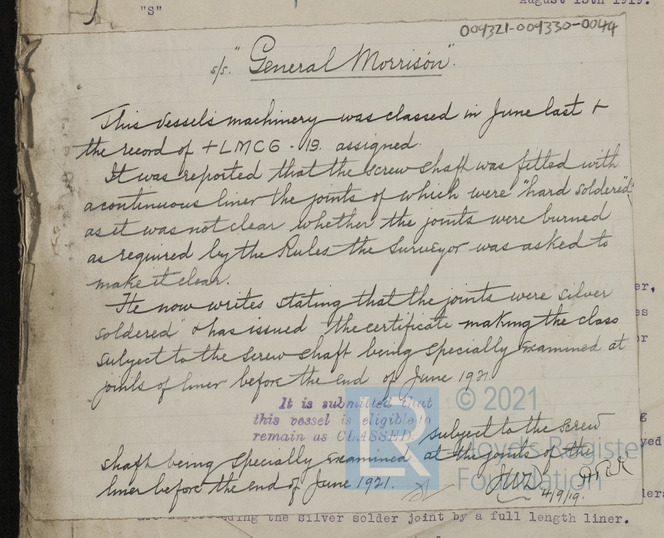 "S"
August 15th 1919.
009321-009330-0044
s/s. "General Morrison".
This vessels machinery was classed in June last &
the record of + LMC 6 - 19. assigned.
It was reported that the screw shaft was fitted with
a continuous liner the joints of which were "hard soldered",
as it was not clear whether the joints were burned
as required by the Rules the Surveyor was asked to
make it clear.
He now writes stating that the joints were "silver
soldered" & has issued the certificate making the class
subject to the screw shaft being specially examined at
joints of liner before the end of June 1921.
It is submitted that
this vessel is eligible to
remain as CLASSED subject to the screw
shaft being specially examined at the joints of the
liner before the end of June 1921.
4/9/19.
the silver solder joint by a full length liner.
LR
© 2021
Lloyd's Register
Foundation